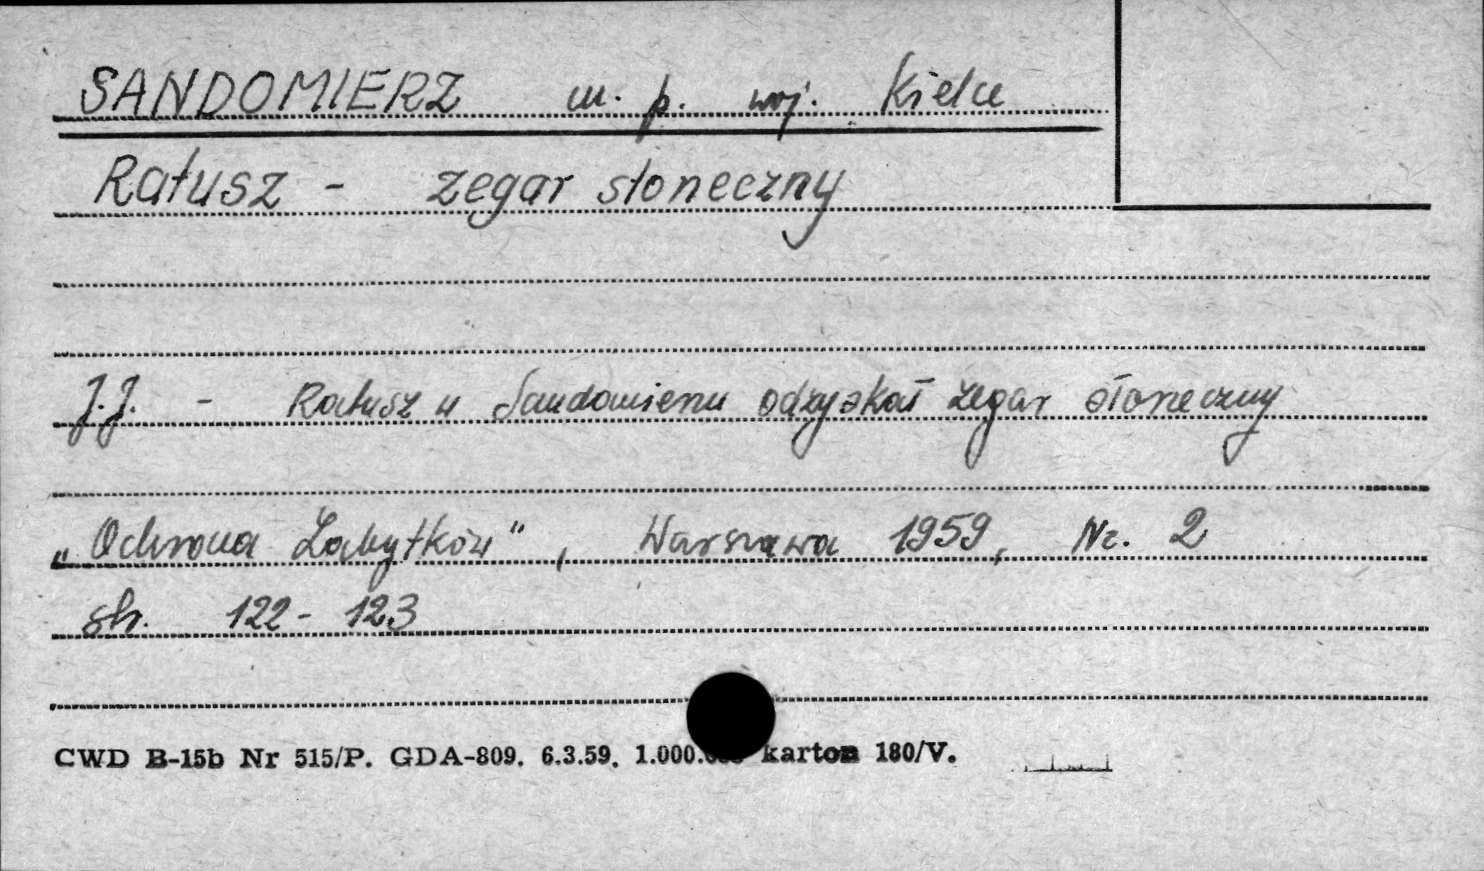 SANDOMIERZ m. p. woj. Kielce
Ratusz - zegar słoneczny
J.J. - Ratusz w Sandomierzu odzyskał zegar słoneczny
„Ochrona Zabytków", Warszawa 1959, Nr. 2
str. 122-123
CWD B-15b Nr 515/P. GDA-809. 6.3.59. 1.000. karton 180/V.